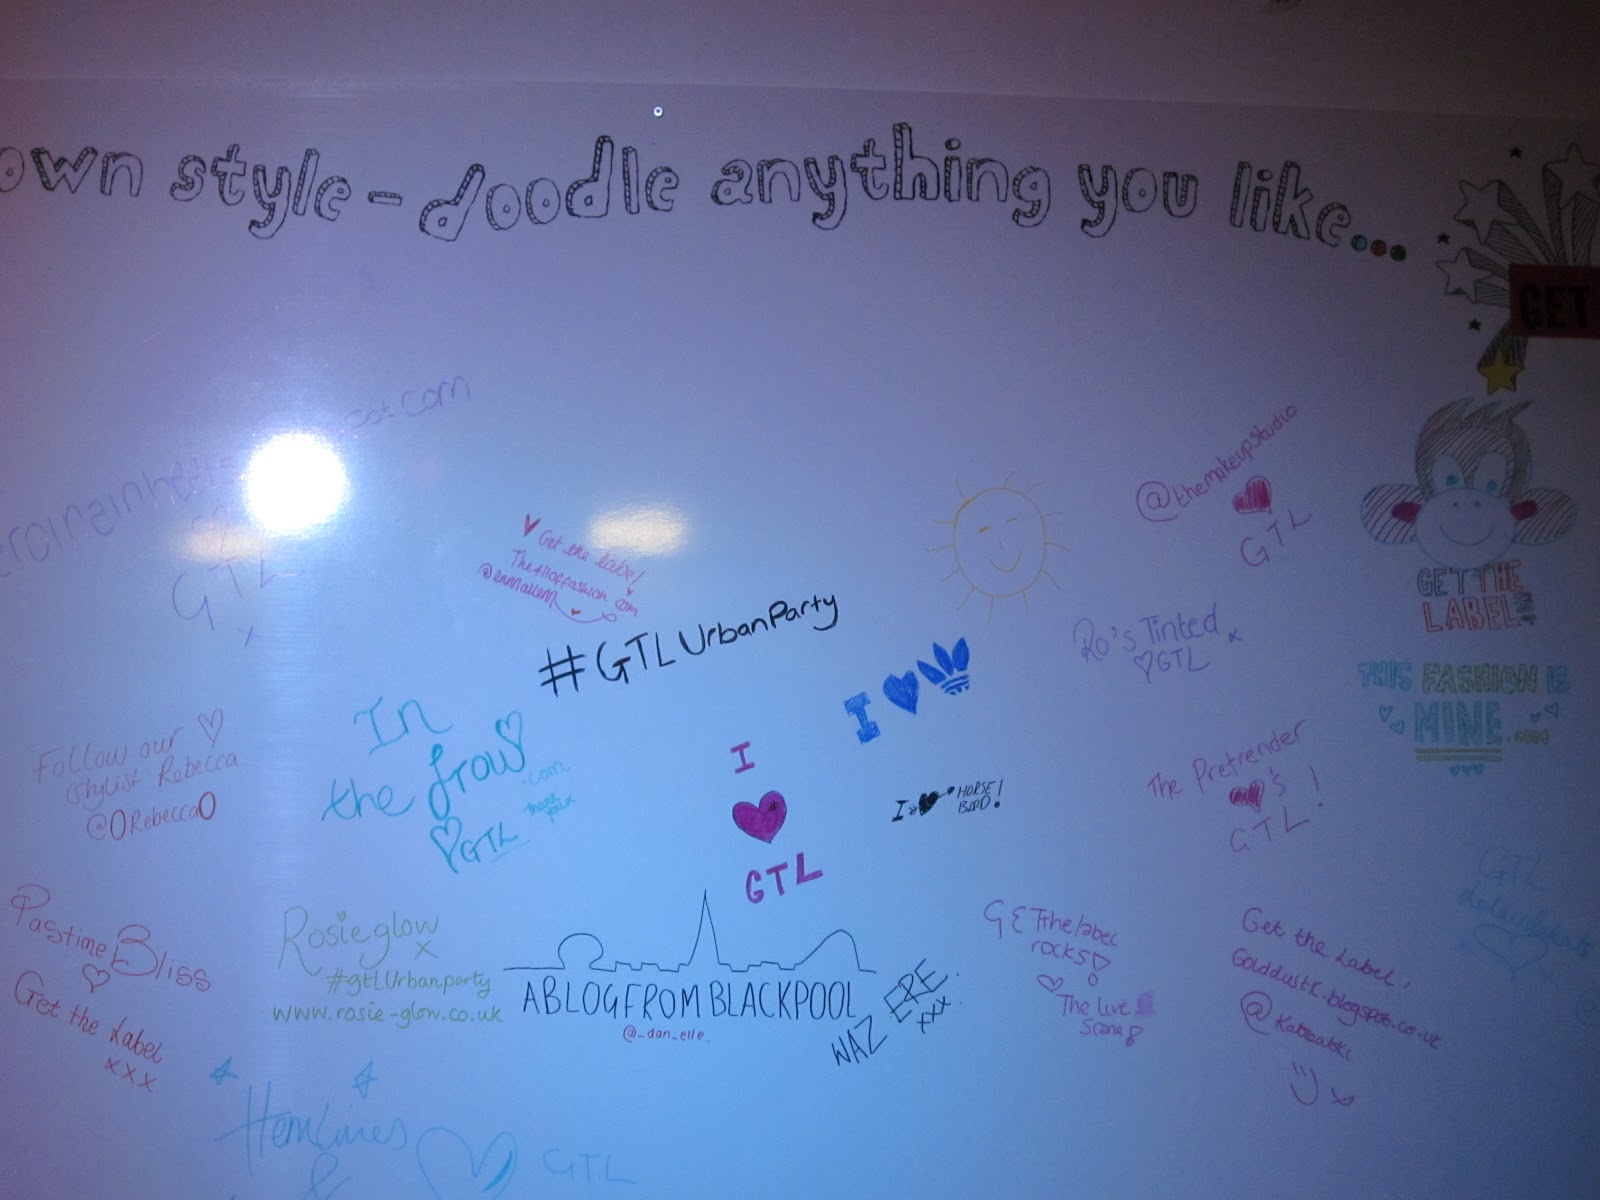 own style - doodle anything you like...
GET
GTL
x
Get the label
@themakeupstudio
GTL
GET THE
LABEL
#GTLUrbanParty
I
Ro's Tinted x
GTL
THIS FASHION IS
MINE.com
Follow our
stylist Rebecca
@0Rebecca0
In
the frow
.com
Thank
you x
GTL
I
GTL
I HORSE!
BIRD!
The Pretrender
's
GTL!
Pastime Bliss
Get the Label
xxx
Rosieglow
x
#gtLUrbanparty
www.rosie-glow.co.uk
A BLOG FROM BLACKPOOL
@_dan_elle.
WAZ ERE.
xxx
GETthelabel
rocks!
The Live
Scene!
Get the Label,
Golddustk.blogspot.co.uk
x
GTL
Hemlines
&
GTL